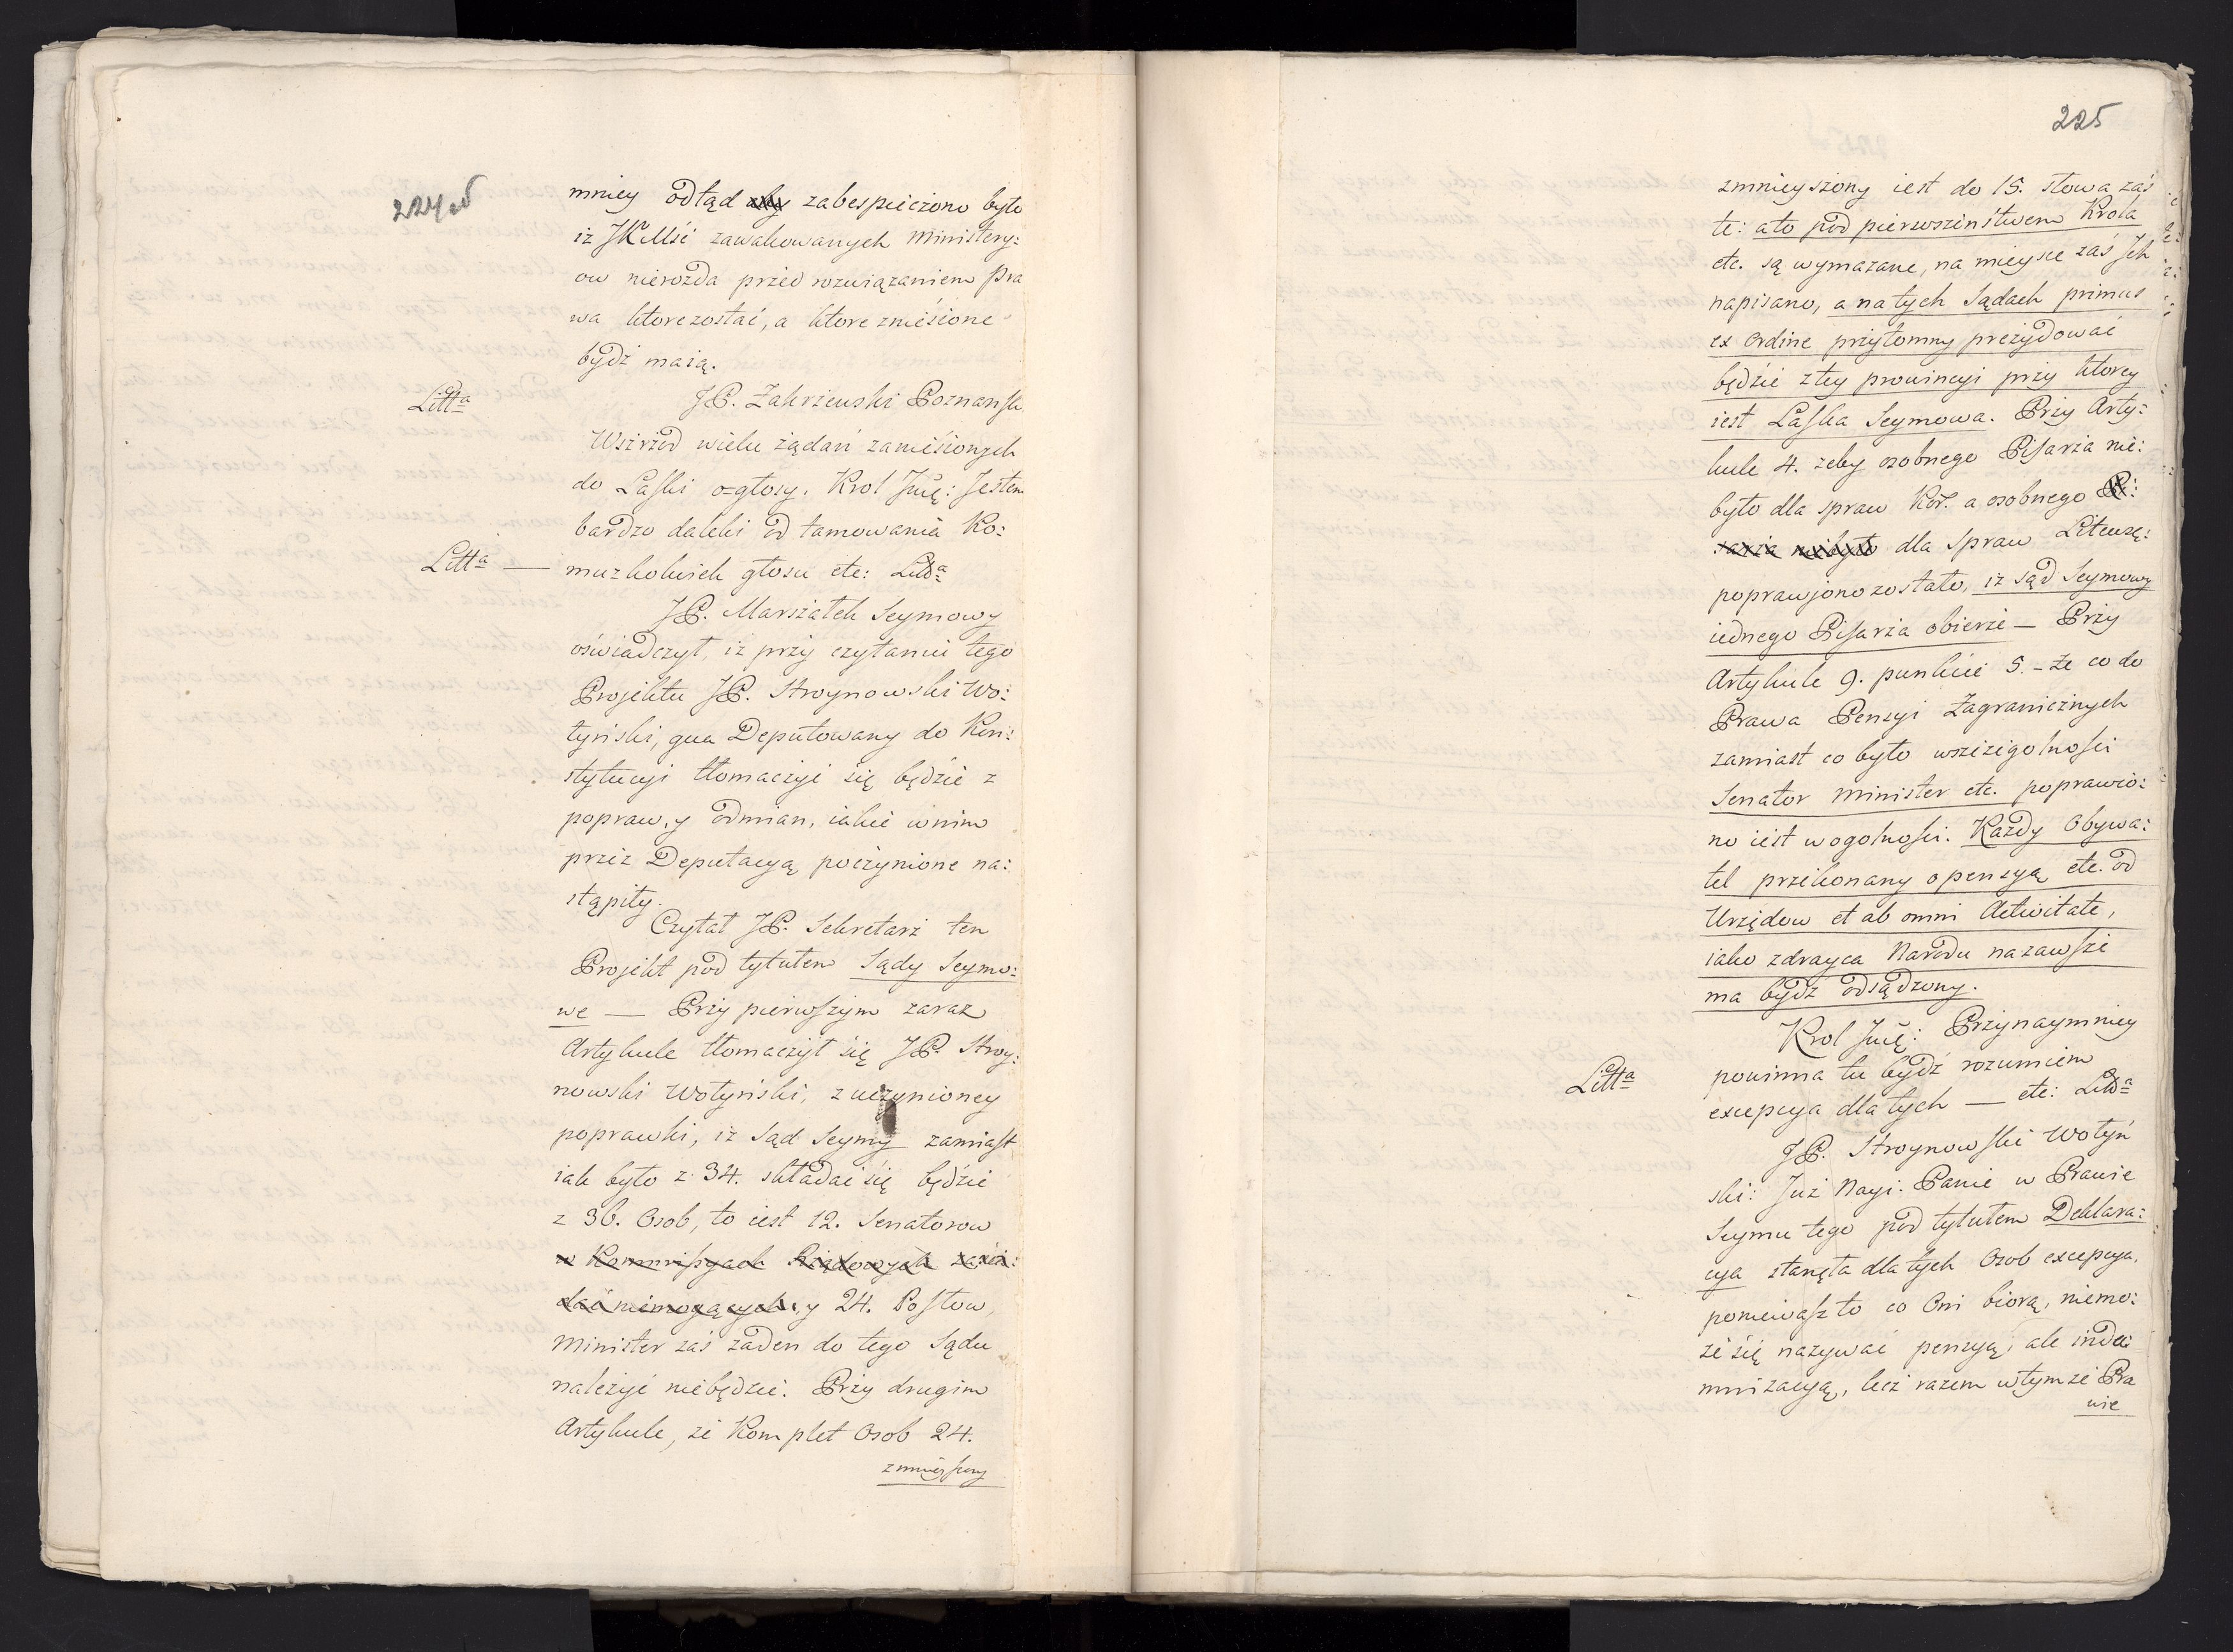 224 od
mniey odtąd ~~aby~~ zabespieczono było
iż JKMść zawakowanych Ministery:
ow nierozda przed rozwiązaniem Pra
wa ktore zostać, a ktore zniesione
bydź maią.
Litt=a
JP. Zakrzewski Poznansk
Wszrzod wielu żądań zaniesionych
do Laski o głosy. Krol Jmć: Jestem
bardzo daleki od tamowania Ko:
Litt=a —
muzkolwiek głosu etc: Litt=a
JP. Marszałek Seymowy
oświadczył, iż przy czytaniu tego
Projektu JP. Stroynowski Wo:
łyński, qua Deputowany do Kon:
stytucyi tłomaczyć się będzie z
popraw, y odmian, iakie w nim
przez Deputacyą poczynione na:
stąpiły.
Czytał JP. Sekretarz ten
Projekt pod tytułem Sądy Seymo:
we — Przy pierwszym zaraz
Artykule tłomaczył się JP. Stroy:
nowski Wołyński, z uczynioney
poprawki, iż Sąd Seymy zamiast
iak było z 34. składać się będzie
z 36. Osob, to iest 12. Senatorow
~~w Kommissyach Rządowych zasia:~~
~~dać niemogących~~, y 24. Posłow,
Minister zaś żaden do tego Sądu
należyć niebędzie. Przy drugim
Artykule, że Komplet Osob 24.
zmnieyszony
225
zmnieyszony iest do 15. słowa zaś
te: a to pod pierwszeństwem Krola
etc. są wymazane, na mieysce zaś Jch
napisano, a na tych Sądach primus
ex Ordine przytomny prezydować
będzie z tey prowincyi przy ktorey
iest Laska Seymowa. Przy Arty:
kule 4. żeby osobnego Pisarza nie:
było dla spraw Kor. a osobnego ~~Pi:~~
~~sarza niebyło~~ dla Spraw Litewsę:
poprawjono zostało, iż sąd Seymowy
iednego Pisarza obierze — Przy
Artykule 9. punkcie 5. – Że co do
Prawa Pensyi Zagranicznych
zamiast co było wszczegolności
Senator Minister etc. poprawio:
no iest wogolności. Każdy Obywa:
tel przekonany o pensyą etc. od
Urzędow et ab omni Activitate,
iako zdrayca Narodu nazawsze
ma bydź odsądzony.
Krol Jmć: Przynaymniey
Litt=a
powinna tu bydź rozumiem
excepcya dla tych — etc: Litt=a
JP. Stroynowski Wołyń
ski: Już Nayi: Panie w Prawie
Seymu tego pod tytułem Deklara:
cya stanęła dla tych Osob excepcya,
ponieważ to co Oni biorą, niemo:
że się nazywać pensyą, ale inde:
mnizacyą, lecz razem w tymże Pra
wie